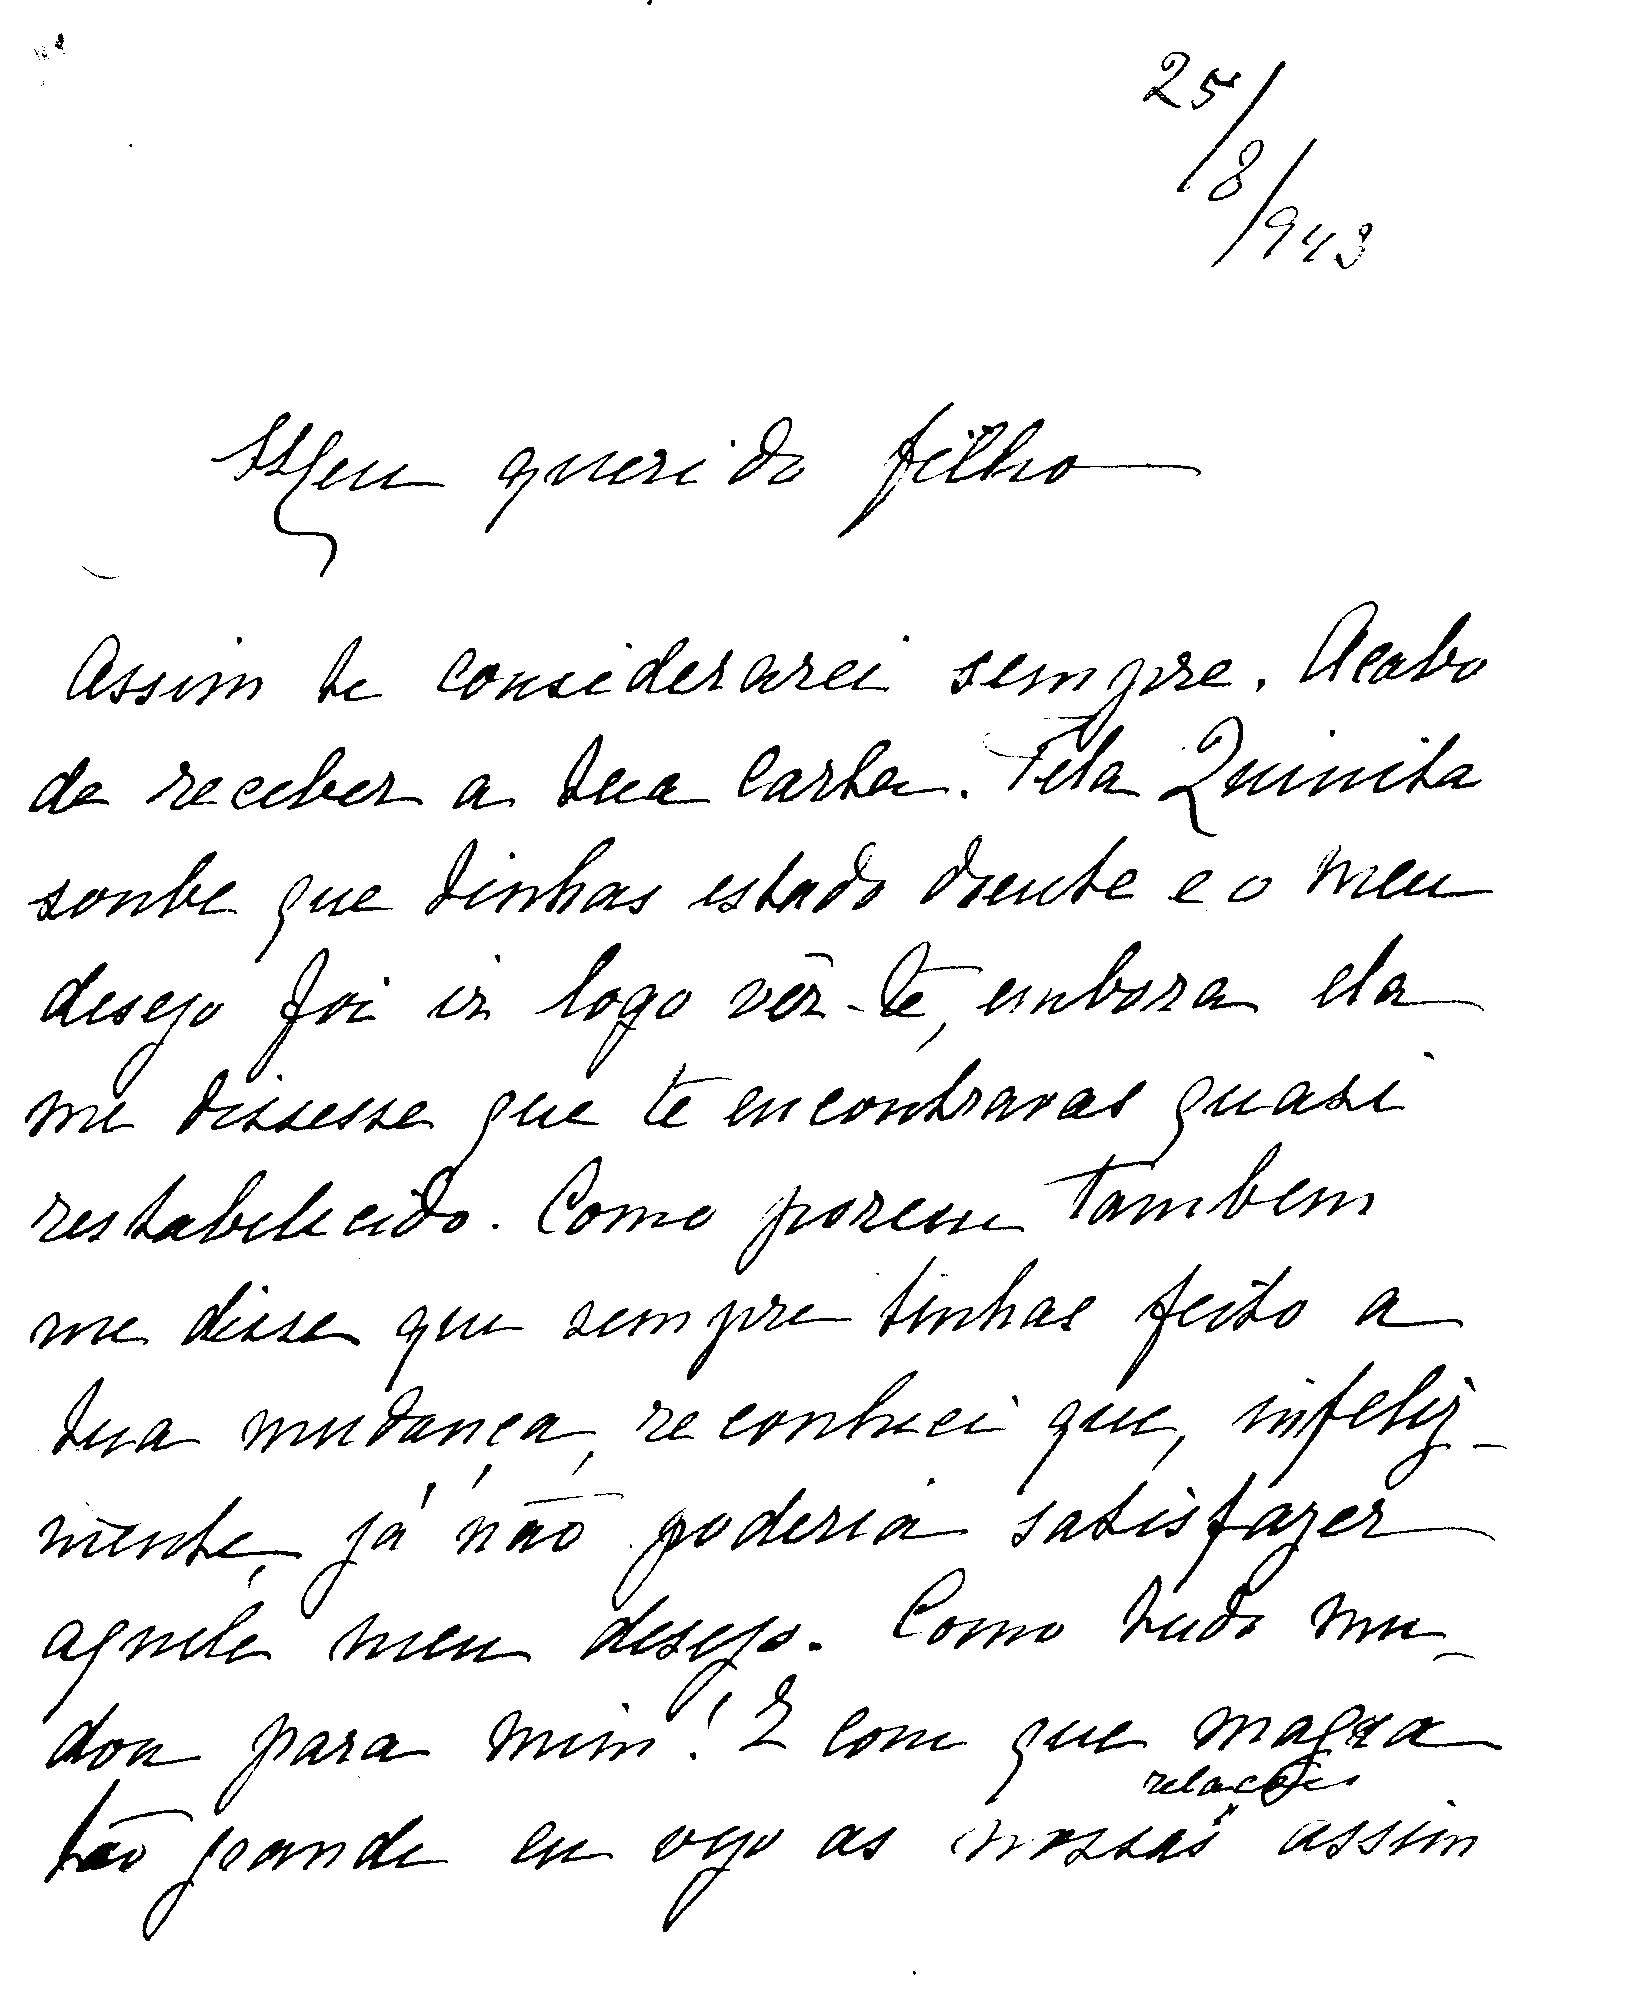 25/8/943
Meu querido filho
Assim te considerarei sempre. Acabo
de receber a tua carta. Pela Quinita
soube que tinhas estado doente e o meu
desejo foi ir logo vêr-te, embora ela
me dissesse que te encontravas quasi
restabelecido. Como porem tambem
me disse que sempre tinhas feito a
tua mudança, reconheci que, infeliz-
mente, já não poderia satisfazer
aquele meu desejo. Como tudo mu-
dou para mim! E com que magua
relações
tão grande eu vejo as nossas assim